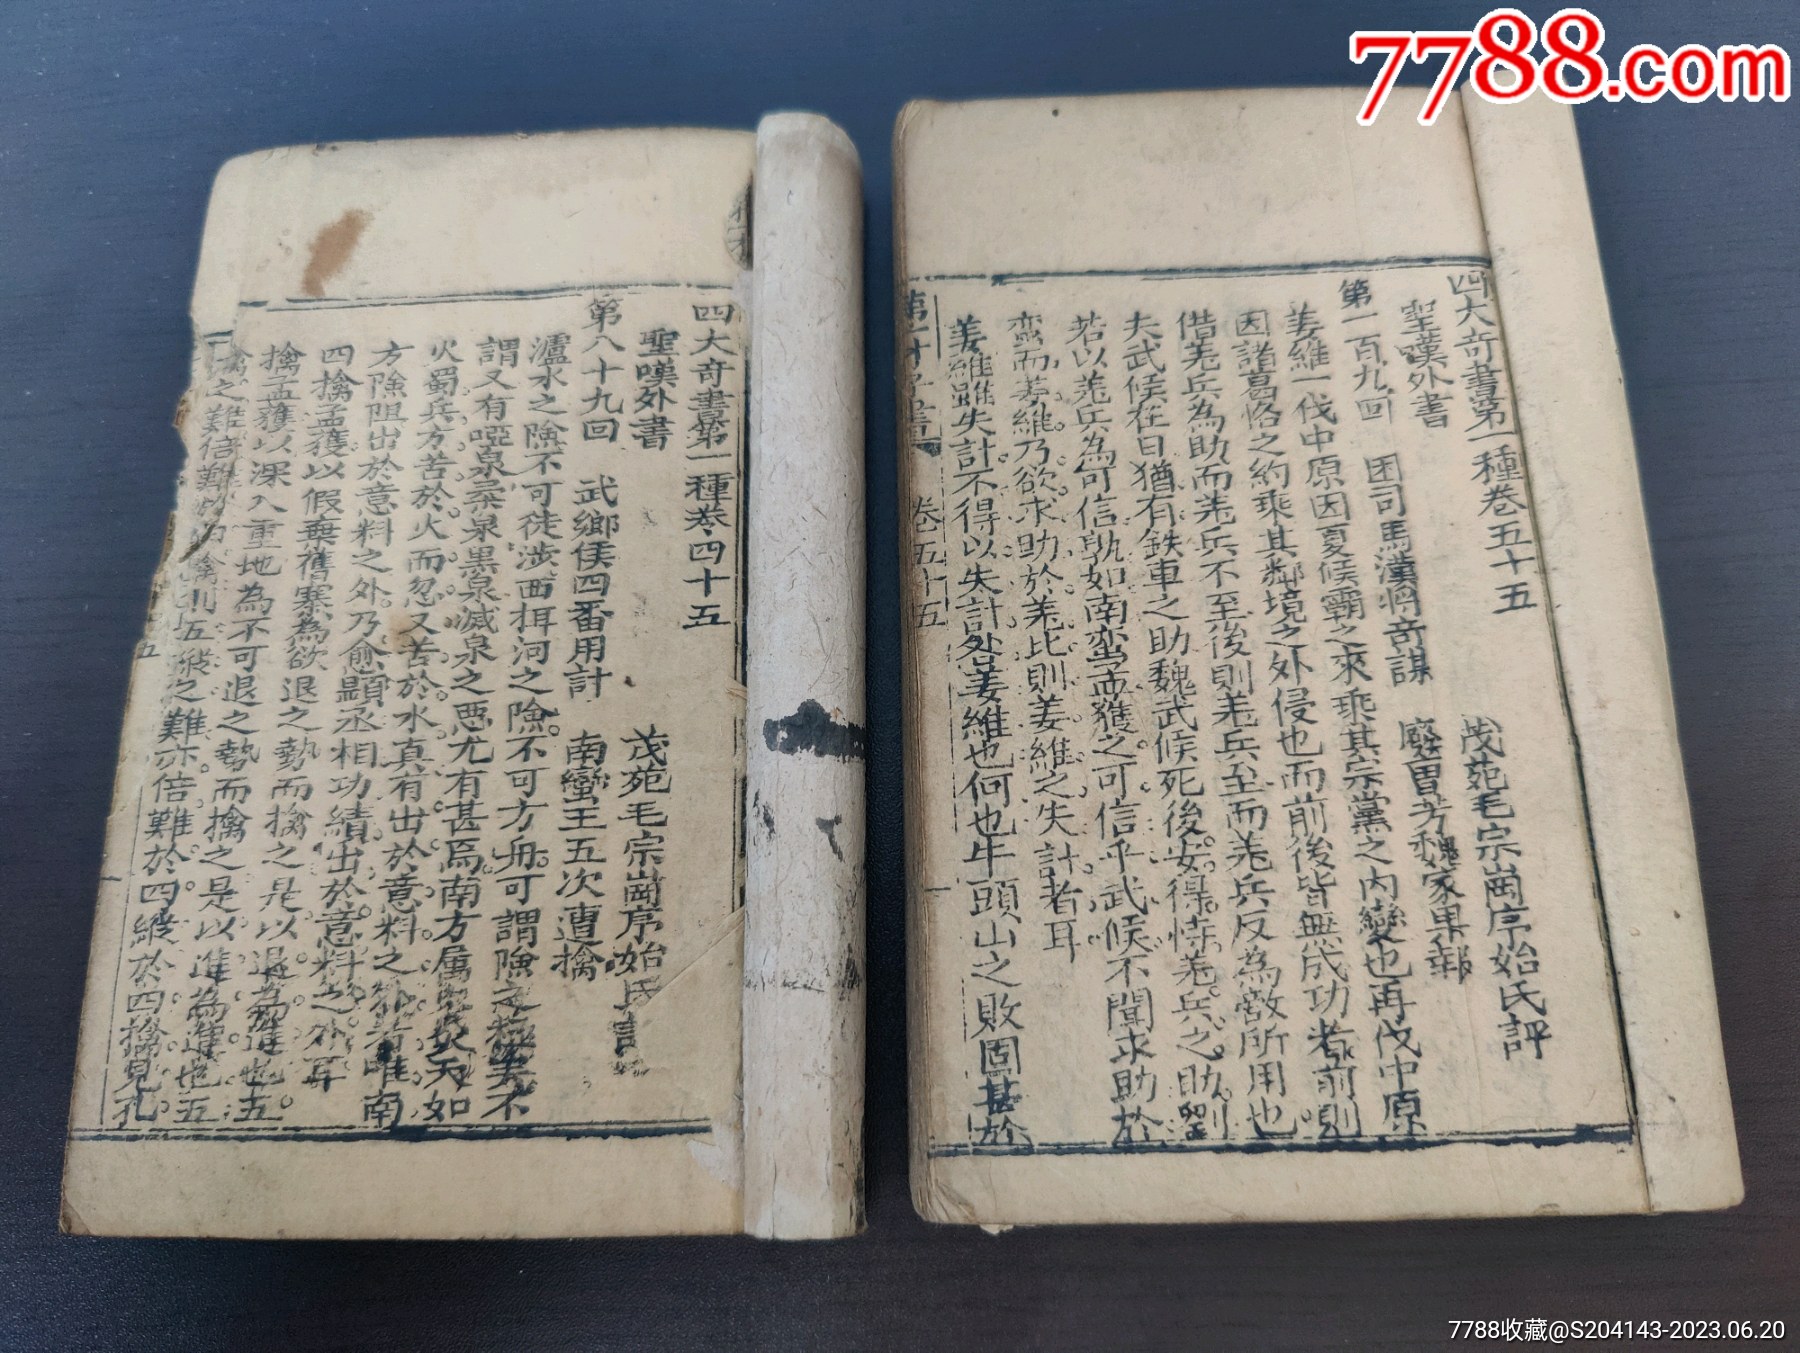 7788.com
四大奇書第一種卷五十五
聖嘆外書
茂苑毛宗崗序始氏評
第一百九回
困司馬漢將奇謀
廢曹芳魏家果報
姜維一伐中原因夏候霸之來乘其宗黨之內變也再伐中原
因諸葛恪之約乘其鄰境之外侵也而前後皆無成功者前則
借羌兵為助而羌兵不至後則羌兵至而羌兵反為敵所用也
夫武候在日猶有鉄車之助魏武候死後安得恃羌兵之助則
若以羌兵為可信孰如南蛮孟獲之可信乎武候不聞求助於
蛮而姜維乃欲求助於羌比則姜維之失計者耳
姜維雖失計不得以失計咎姜維也何也牛頭山之敗固甚於
第一才子書
卷五十五
四大奇書第一種卷四十五
聖嘆外書
茂苑毛宗崗序始氏
第八十九回
武鄉侯四番用計
南蠻王五次遭擒
瀘水之險不可徒涉西洱河之險不可方舟可謂險之極矣不
謂又有啞泉柔泉黑泉滅泉之惡尤有甚焉南方屬火炎天如
火蜀兵方苦於火而忽又苦於水真有出於意料之外者唯南
方險阻出於意料之外乃愈顯丞相功績出於意料之外耳
四擒孟獲以假棄舊寨為欲退之勢而擒之是以退為進也五
擒孟獲以深入重地為不可退之勢而擒之是以進為進也五
擒之難倍難於四擒則五縱之難亦倍難於四縱於四擒見孔
五
7788收藏@S204143-2023.06.20